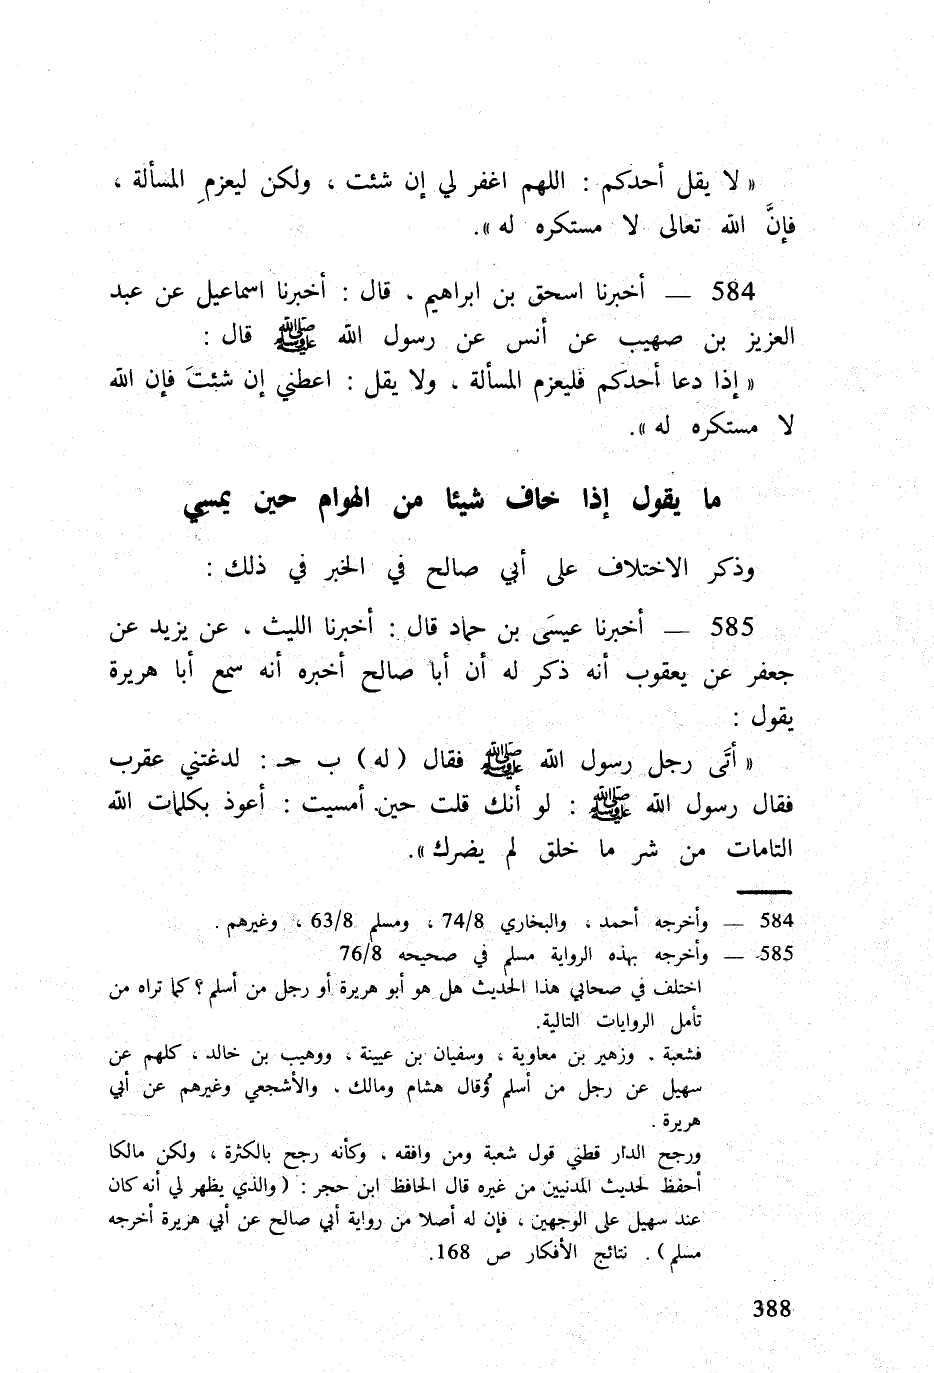 « لا يقل أحدكم : اللهم اغفر لي إن شئت ، ولكن ليعزمِ المسألة ،
فإنَّ الله تعالى لا مستكره له ».
584 — أخبرنا اسحق بن ابراهيم . قال : أخبرنا اسماعيل عن عبد
العزيز بن صهيب عن أنس عن رسول الله ﷺ قال :
« إذا دعا أحدكم فليعزم المسألة . ولا يقل : اعطني إن شئتَ فإن الله
لا مستكره له ».
ما يقول إذا خاف شيئا من الهوام حين يمسي
وذكر الاختلاف على أبي صالح في الخبر في ذلك :
585 — أخبرنا عيسَى بن حماد قال : أخبرنا الليث . عن يزيد عن
جعفر عن يعقوب أنه ذكر له أن أبا صالح أخبره أنه سمع أبا هريرة
يقول :
« أتَى رجل رسول الله ﷺ فقال ( له ) ب حـ : لدغتني عقرب
فقال رسول الله ﷺ : لو أنك قلت حين أمسيت : أعوذ بكلمات الله
التامات من شر ما خلق لم يضرك ».
584 — وأخرجه أحمد ، والبخاري 74/8 ، ومسلم 63/8 ، وغيرهم .
585 — وأخرجه بهذه الرواية مسلم في صحيحه 76/8
اختلف في صحابي هذا الحديث هل هو أبو هريرة أو رجل من أسلم ؟ كما تراه من
تأمل الروايات التالية.
فشعبة . وزهير بن معاوية ، وسفيان بن عيينة ، ووهيب بن خالد ، كلهم عن
سهيل عن رجل من أسلم وُقال هشام ومالك . والأشجعي وغيرهم عن أبي
هريرة .
ورجح الدار قطني قول شعبة ومن وافقه . وكأنه رجح بالكثرة ، ولكن مالكا
أحفظ لحديث المدنيين من غيره قال الحافظ ابن حجر : ( والذي يظهر لي أنه كان
عند سهيل على الوجهين ، فإن له أصلا من رواية أبي صالح عن أبي هريرة أخرجه
مسلم ) . نتائج الأفكار ص 168.
388